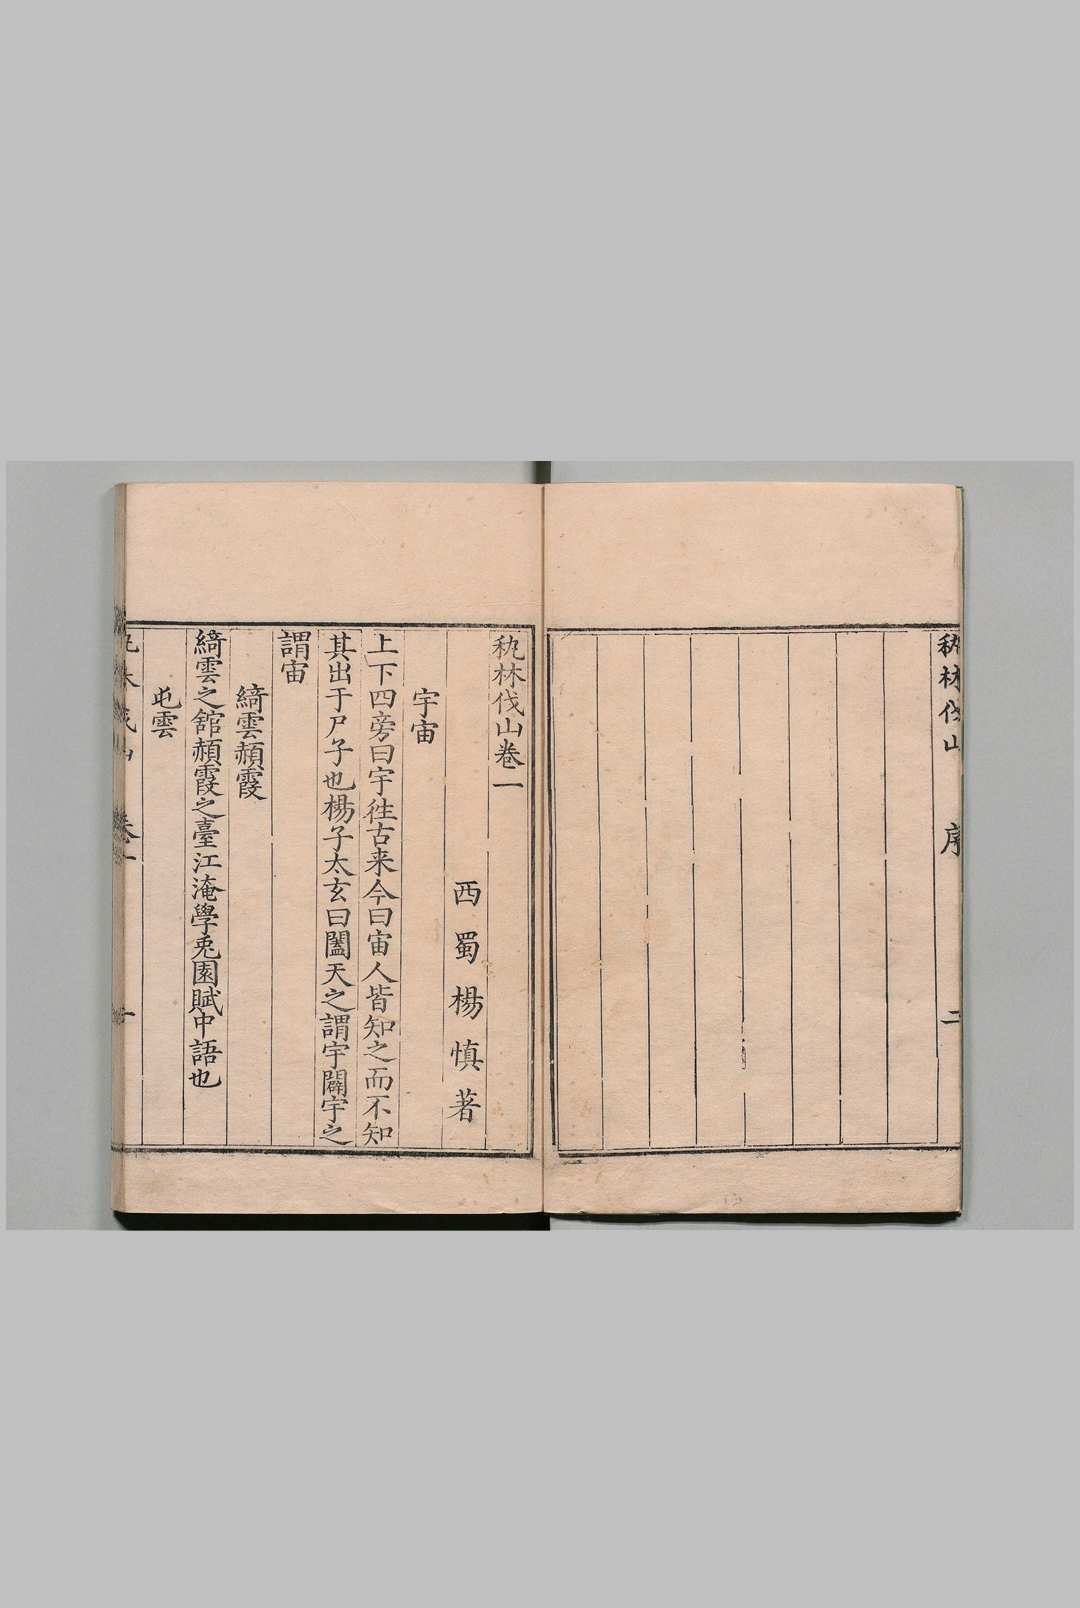 秇林伐山
序
二
秇林伐山卷一
西蜀楊慎著
宇宙
上下四旁曰宇徃古来今曰宙人皆知之而不知
其出于尸子也楊子太玄曰闔天之謂宇闢宇之
謂宙
綺雲赬霞
綺雲之舘赬霞之臺江淹學兎園賦中語也
屯雲